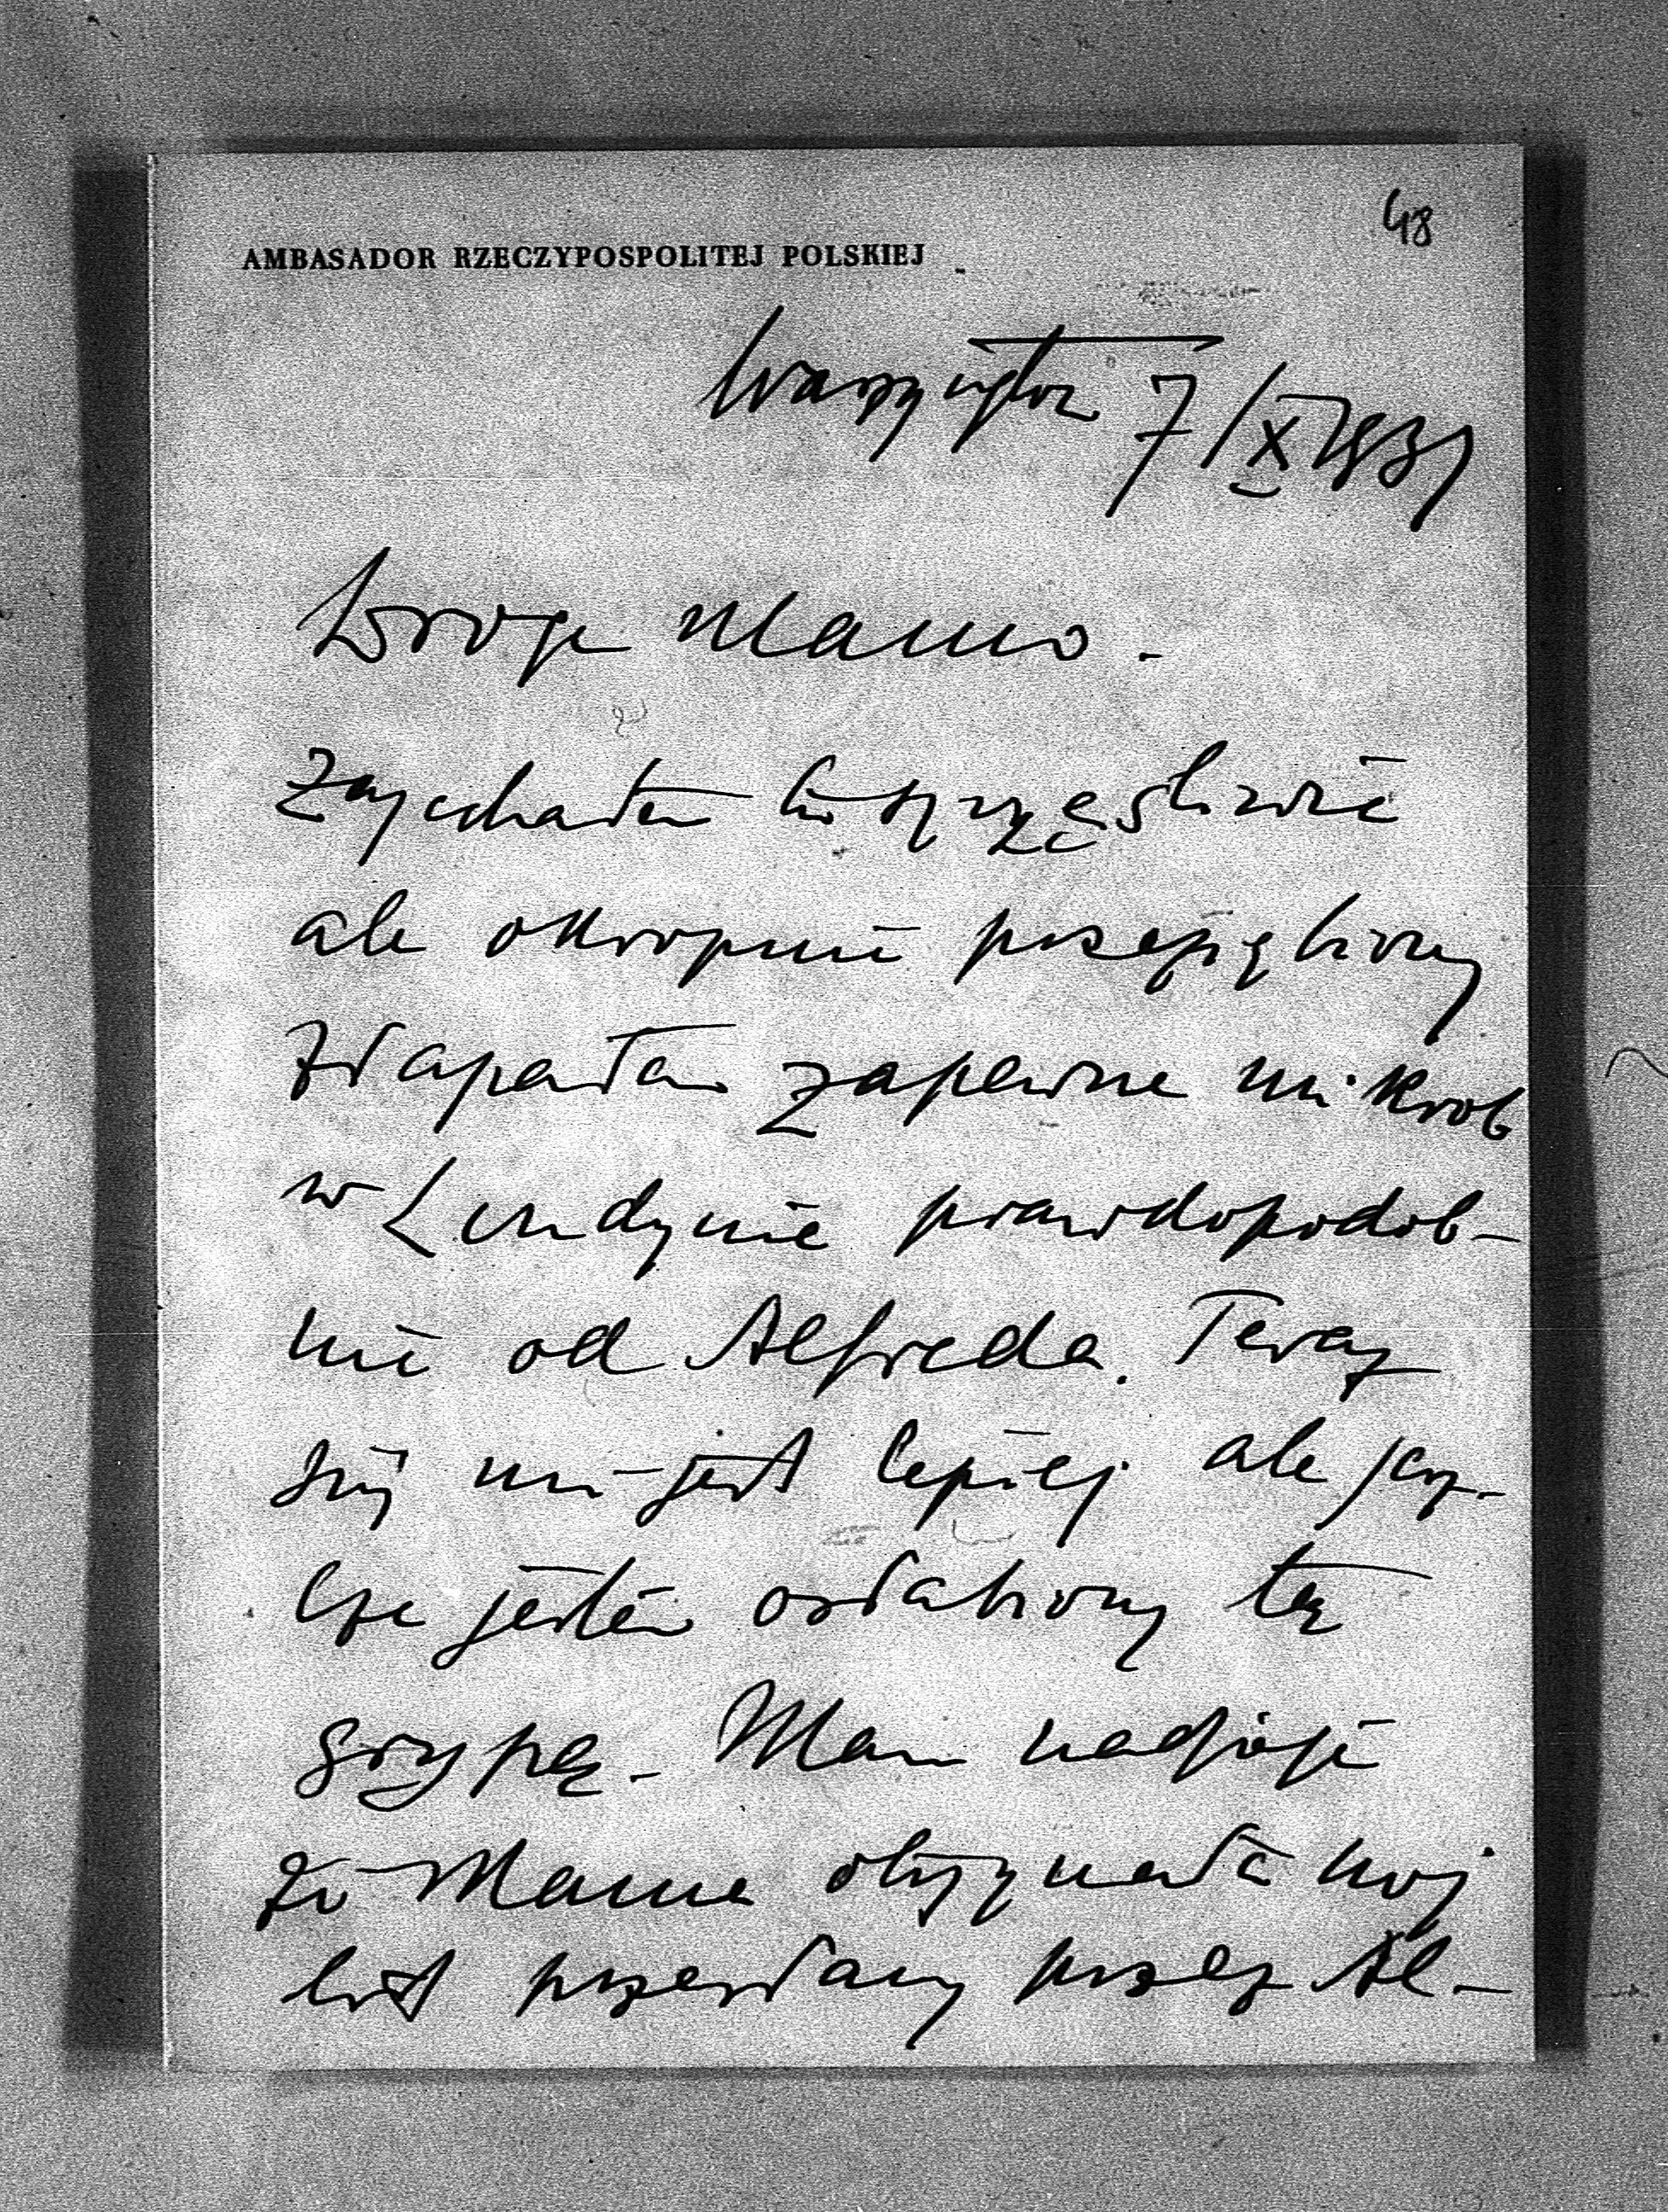 48
AMBASADOR RZECZYPOSPOLITEJ POLSKIEJ
Waszyngton 7/X 1937
Droga Mamo.
Zajechałem tu szczęśliwie
ale okropnie przeziębiony
Złapałem zapewne mikrob
w Londynie prawdopodob-
nie od Alfreda. Teraz
już mi jest lepiej ale jesz-
cze jestem osłabiony tą
grypą. Mam nadzieję
że Mama otrzymała mój
list przesłany przez Al-